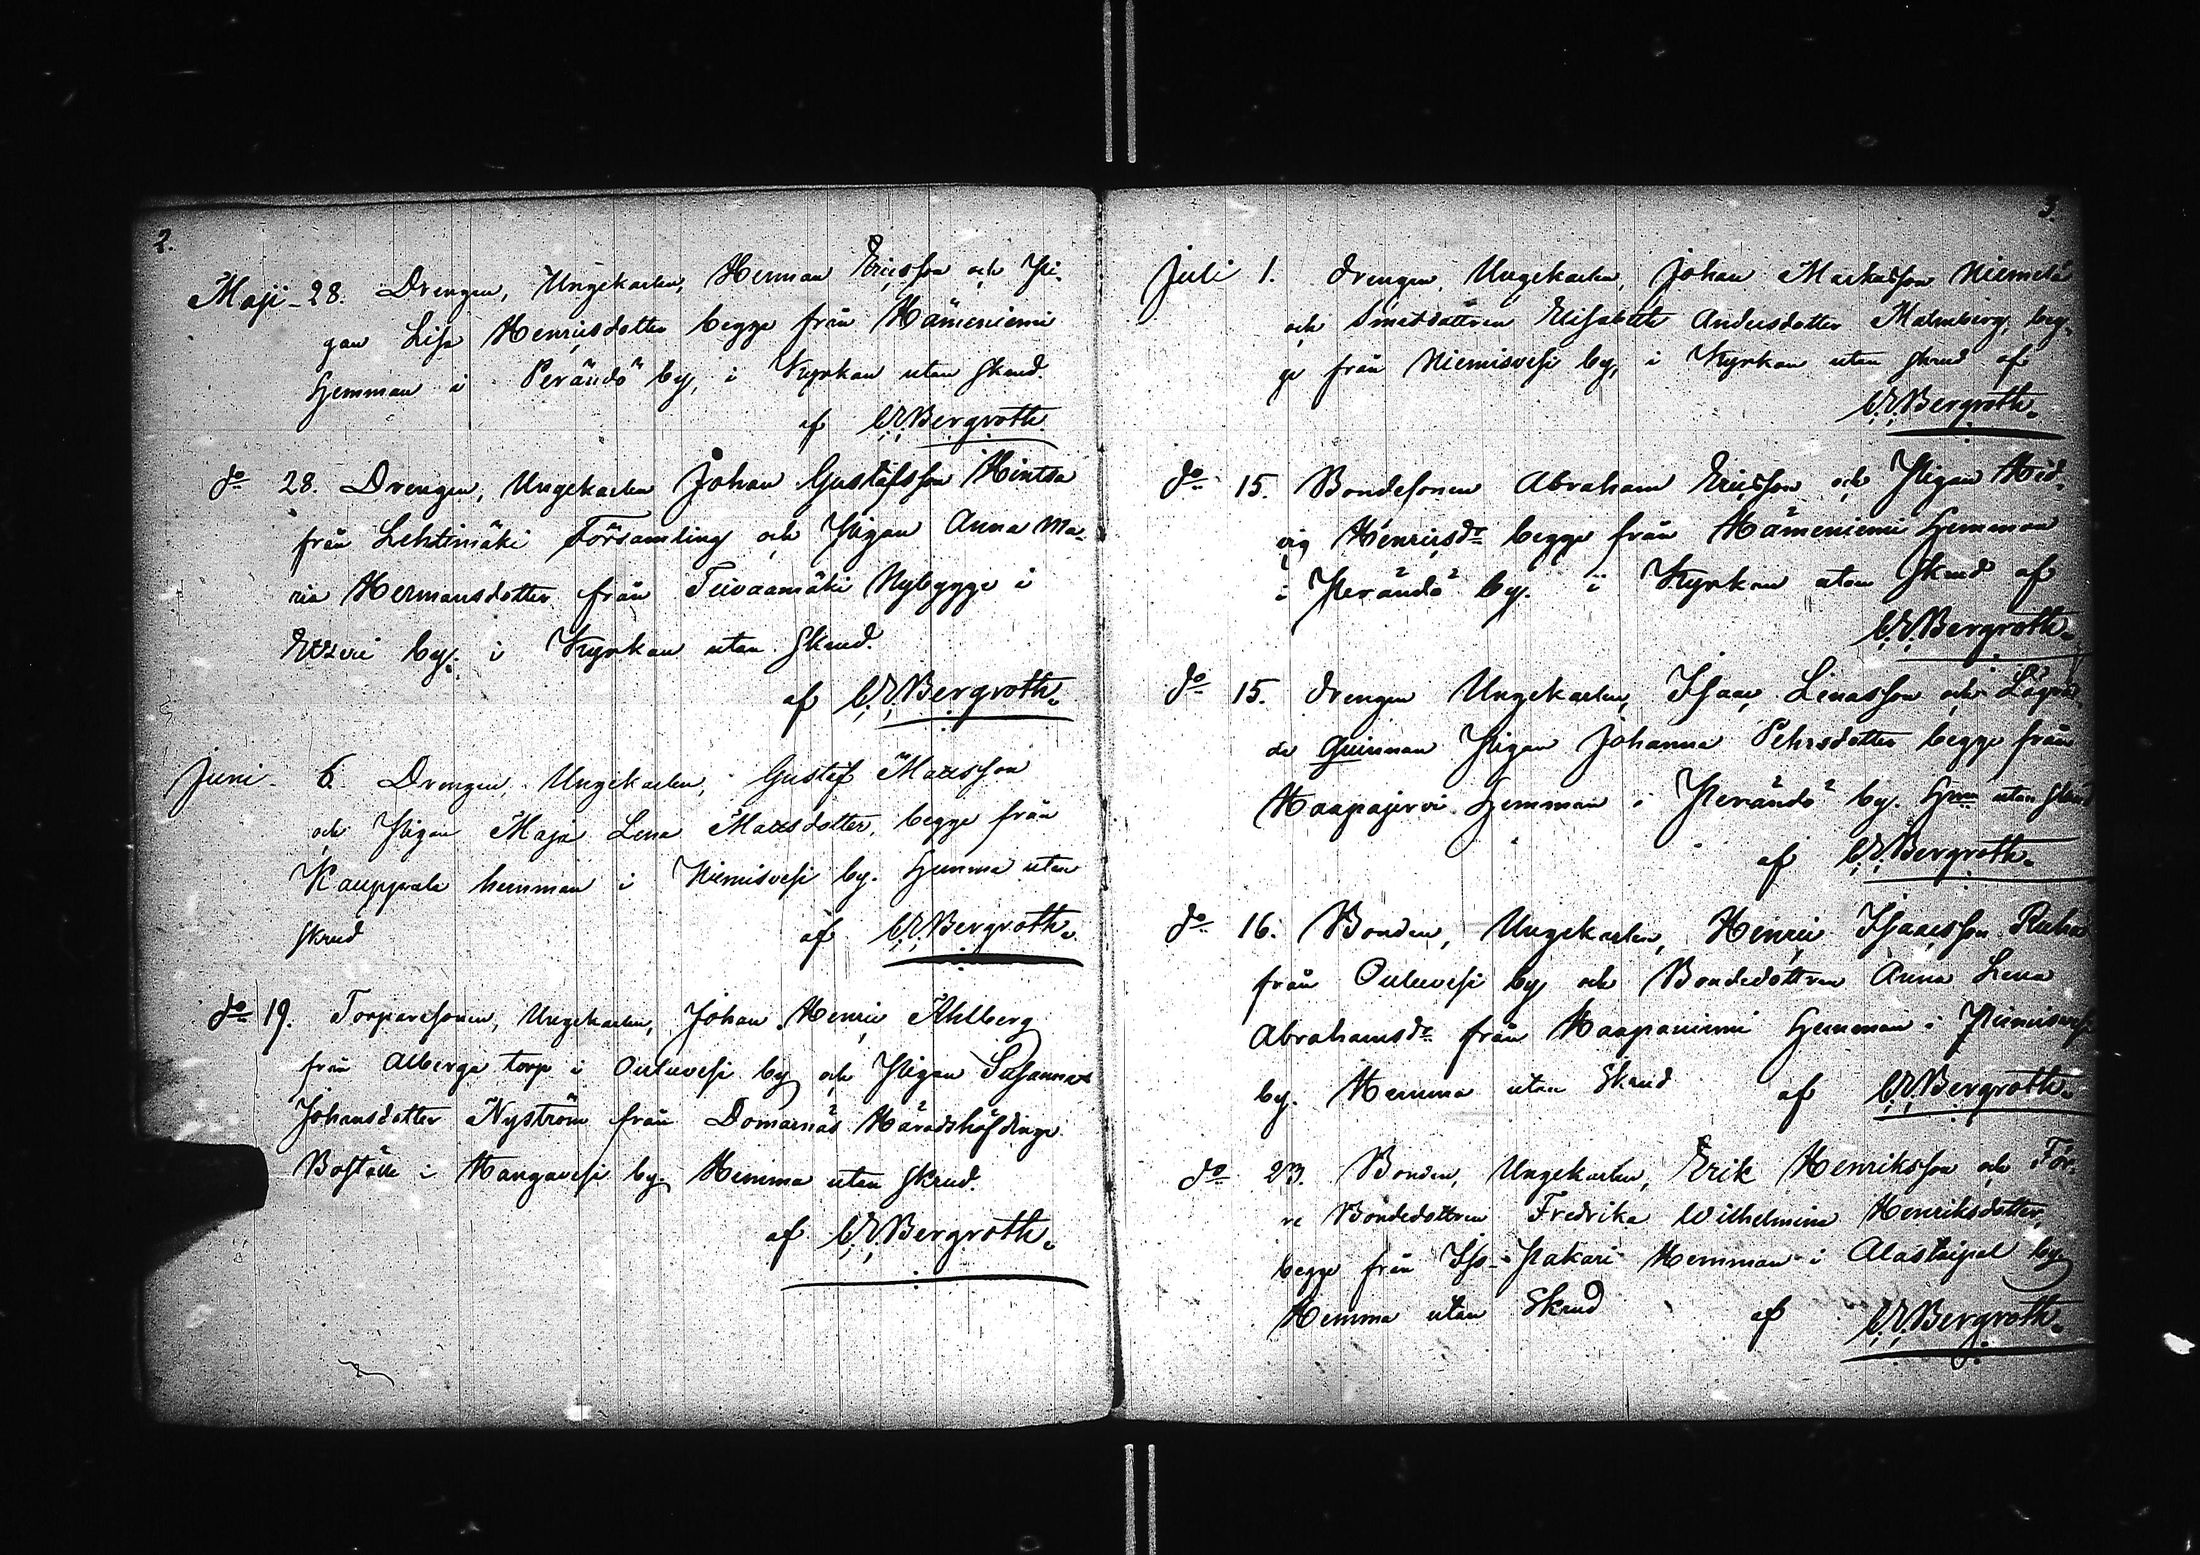 2.
Maji - 28. Drengen, Ungekarlen, Herman Ericsson och Pi-
gan Lisa Henricsdotter begge från Hämeniemi
Hemman i Perändö by, i Kyrkan utan skrud.
af C.E. Bergroth.
do 28. Drengen, Ungekarlen Johan Gustafsson Hintsa
från Lehtimäki Församling och Pigan Anna Ma-
ria Hermansdotter från Teivaamäki Nybygge i
Etzeri by, i Kyrkan utan Skrud.
af C.E. Bergroth.
Juni 6. Drengen, Ungekarlen, Gustaf Mattsson
och Pigan Maja Lena Mattsdotter, begge från
Kauppala hemman i Niemisvesi by. Hemma utan
skrud af C.E. Bergroth.
do 19. Torparesonen, Ungekarlen, Johan Henric Ahlberg
från Alberga torp i Ouluvesi by och Pigan Susanna
Johansdotter Nyström från Domarnäs Häradshöfdinge
Boställe i Hangavesi by. Hemma utan skrud.
af C.E. Bergroth.
3
Juli 1. drengen, Ungekarlen, Johan Markusson Niemelä
och Smetsdottren Elisabeth Andersdotter Malmberg, beg-
ge från Niemisvesi by, i Kyrkan utan skrud af
C.E. Bergroth.
do 15. Bondesonen Abraham Ericsson och Pigan Hed-
vig Henricsdr begge från Hämeniemi Hemman
i Perändö by. i Kyrkan utan Skrud af
C.E. Bergroth.
do 15. drengen Ungekarlen, Isaac Lenasson och Lägra-
de Quinnan Pigan Johanna Pehrsdotter begge från
Haapajervi Hemman i Perändö by. Hma utan skrud
af C.E. Bergroth.
do 16. Bonden, Ungekarlen, Henric Isaacsson
från Ouluvesi by och Bondedottren Anna Lena
Abrahamsdr från Haapaniemi Hemman i Niemisvesi
by. Hemma utan Skrud af C.E. Bergroth.
do 23. Bonden, Ungekarlen, Erik Henriksson och För-
re Bondedottren Fredrika Wilhelmina Henriksdotter
begge från Iso-Pakari Hemman i Alastaipal by
Hemma utan Skrud af C.E. Bergroth.